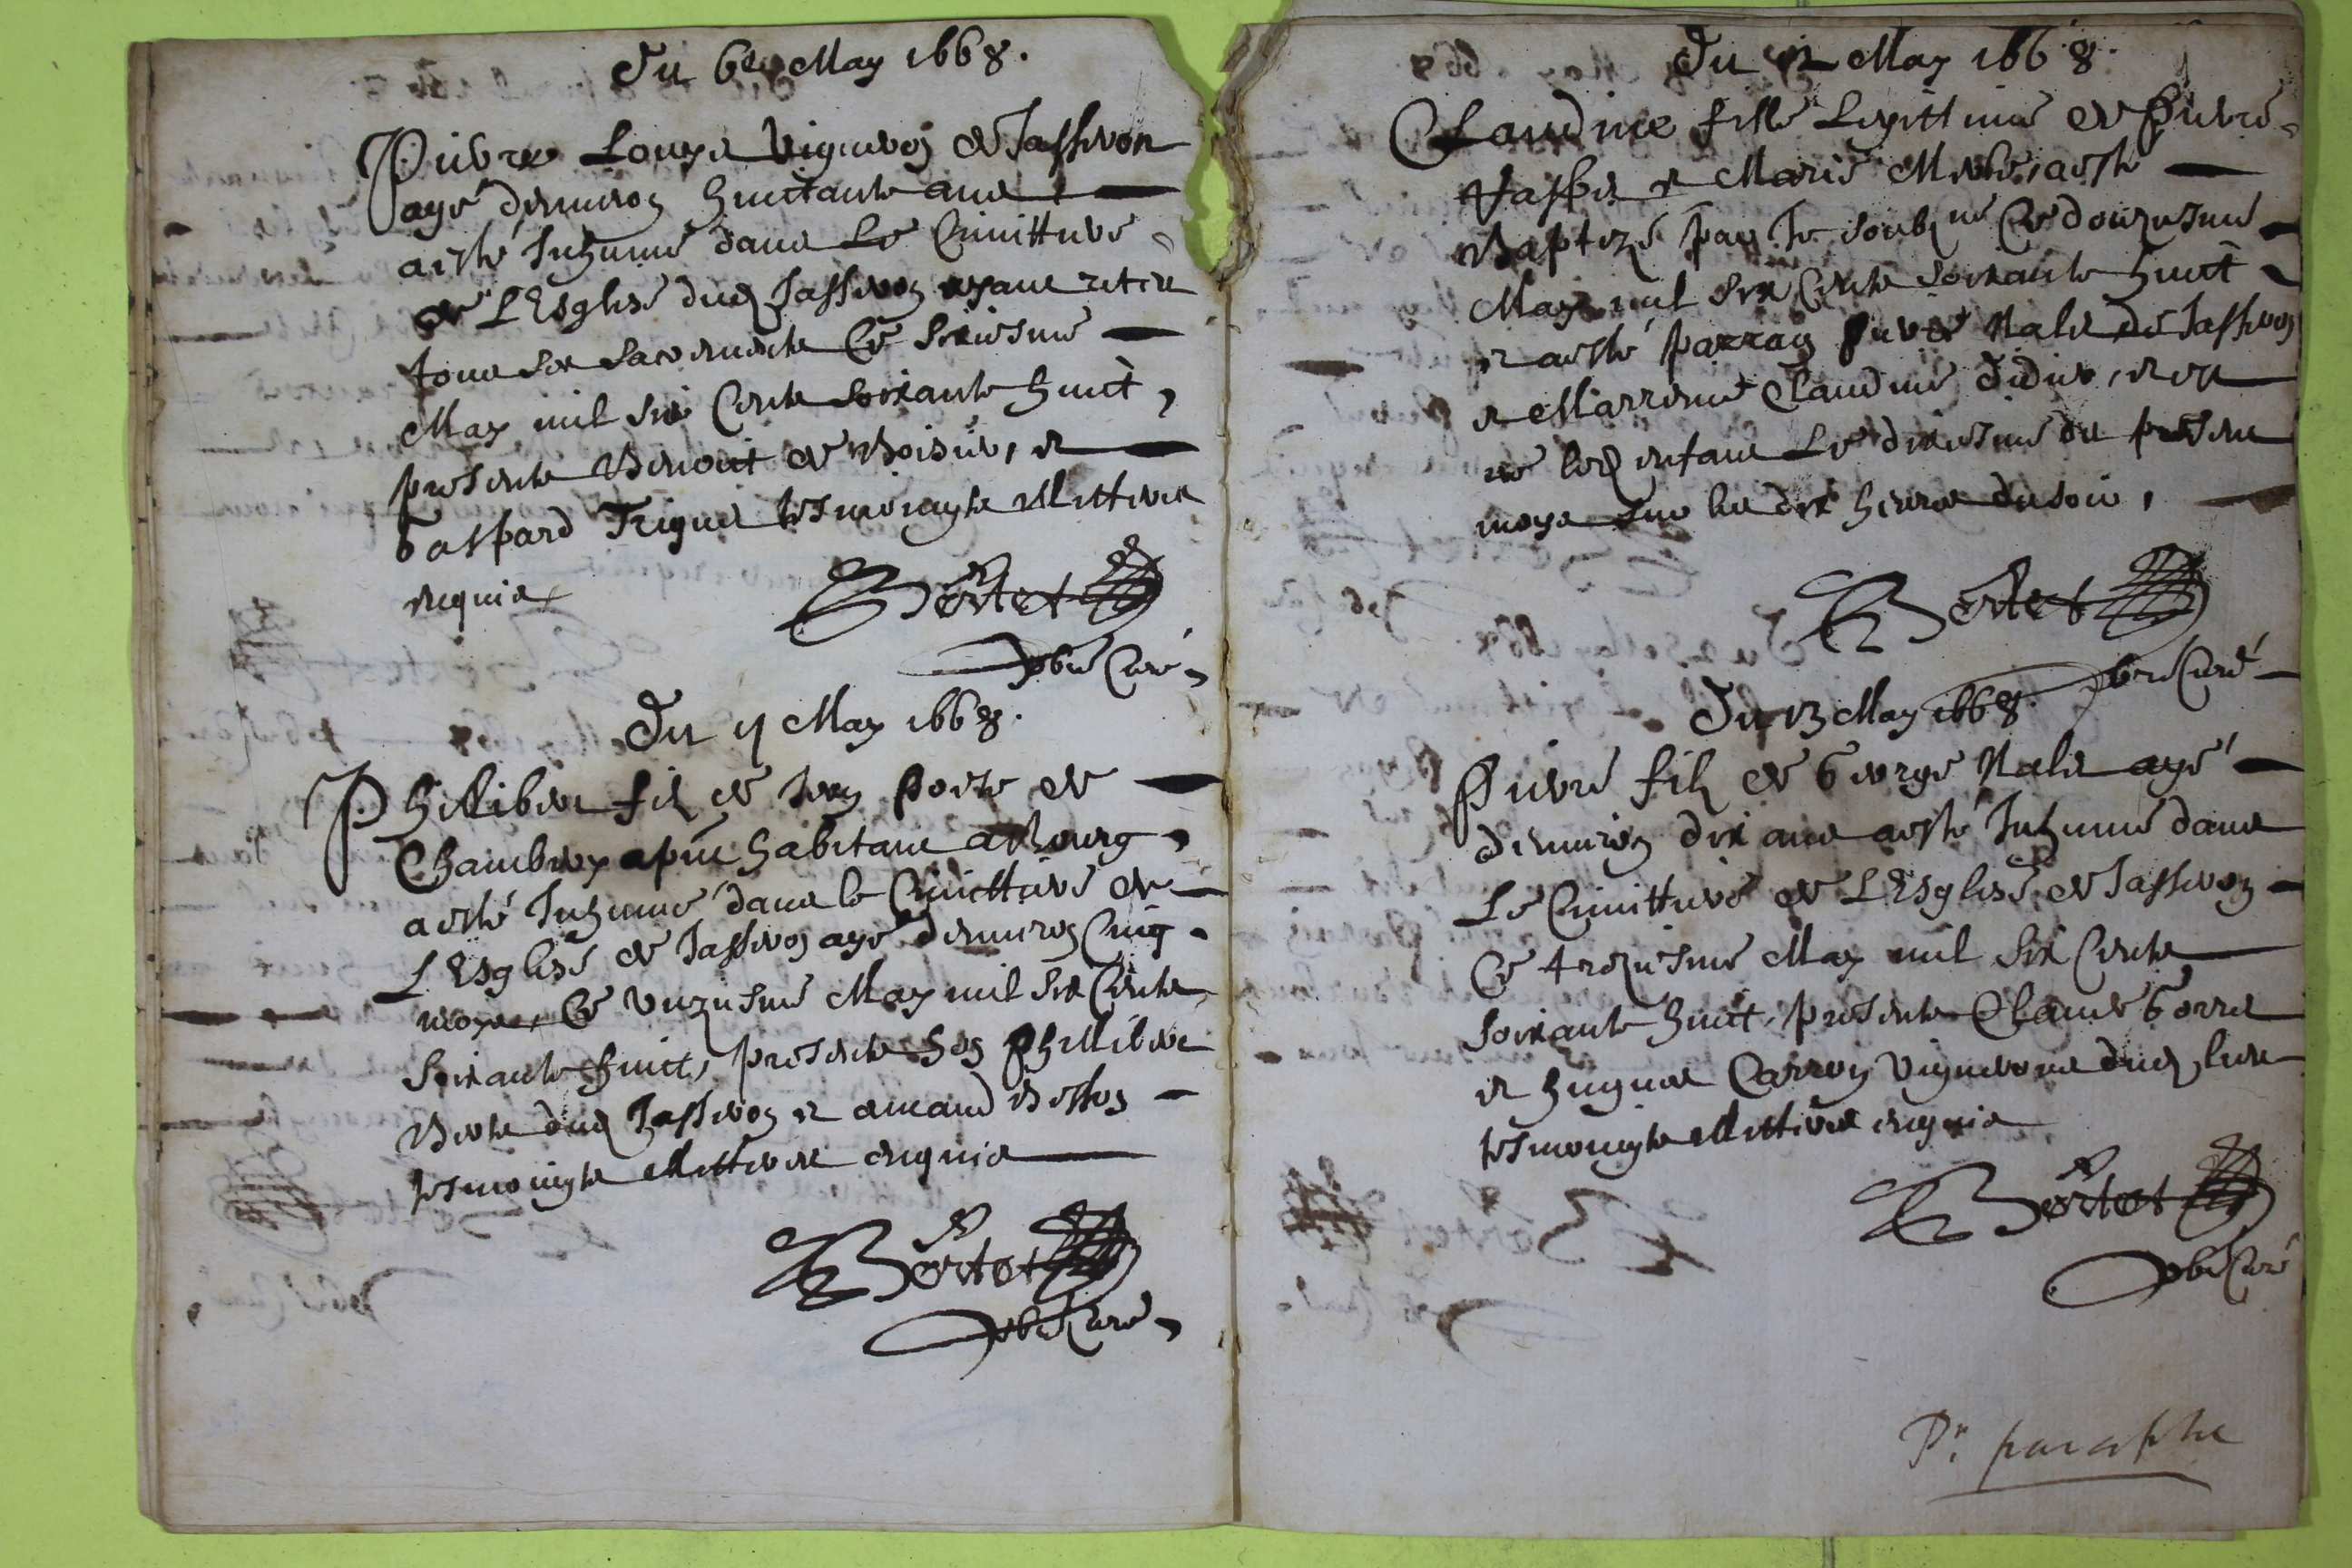 Du 6e May 1668.
Pierre Louys Vigneron de Jasseron
agé d'environ huictante ans,
a esté Inhumé dans Le Cimittiere
de L'Esglise dud Jasseron ayant receu
tous ses sacrements Ce sixiesme
May mil six Cents soixante huict,
presents Benoict de Boisieu, et
Gaspard tesmoingts Illitterés
enquis
Bertet
pbre Curé
Du 11 May 1668.
Philibert fils de Jean Poete de
Chambery apnt habitant a Bourg
a esté Inhumé dans le Cimittiere de
L'Esglise de Jasseron agé d'environ Cinq
moys, Ce Unziesme May mil six Cents
soixante huict, presents hon Phillibert
dud Jasseron et
tesmoingts Illitterés enquis
Bertet
pbre Curé
Du 12 May 1668.
Claudine fille Legittime de Pierre
et Marie a esté
Baptizé par Je soubsné Ce douziesme
May mil six Cents soixante huict
et a esté parrain Pierre Nalet de Jasseron
et Marrine Claudine Didier, et est
né led enfant Le dixiesme du present
moys sur les dix heures du soir,
Bertet
pbre Curé
Du 13 May 1668.
Pierre fils de George Nalet agé
d'environ dix ans a esté Inhumé dans
Le Cimittiere de L'Esglise de Jasseron
Ce treziesme May mil six Cents
soixante huict, presents Claude Gorret
et Hugues Carron Vignerons dud lieu
tesmoingts Illitterés enquis
Bertet
pbre Curé
Pr paraphe